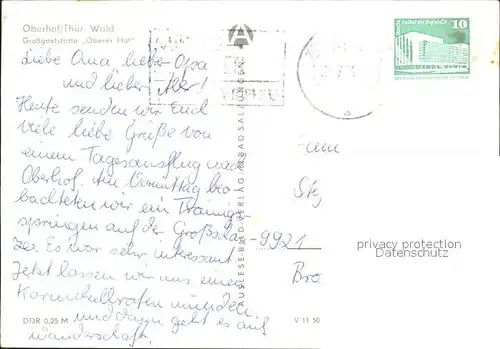 Oberhof/Thür. Wald
Großgaststätte „Oberer Hof"
Liebe Oma lieber Opa
und lieber
Heute senden wir Euch
viele liebe Grüße von
einem Tagesausflug nach
Oberhof. Am Vormittag beo-
bachteten wir ein Trainings-
springen auf der Großschan-
ze. Es war sehr interessant.
Jetzt lassen wir uns einen
Kaninchenbraten munden
und dann geht es auf
Wanderschaft.
DDR 0,25 M
AUSLESE-BILD-VERLAG, BAD SALZUNGEN
V 11 50
Palast der Republik
10
Fam
9921
privacy protection
Datenschutz